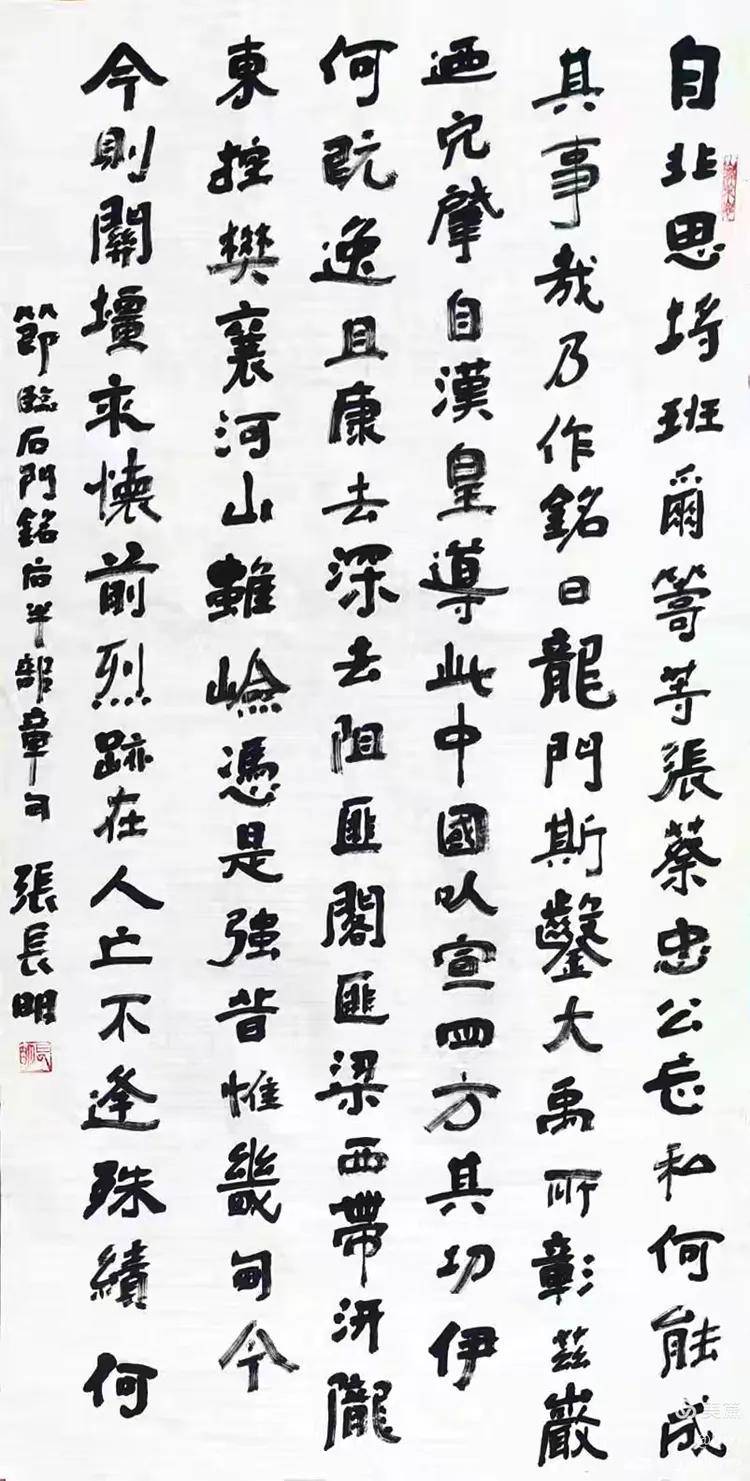 自非思埒班爾籌等張蔡忠公忘私何能成
其事哉乃作銘曰龍門斯鑿大禹所彰茲巖
迺穴肇自漢皇導此中國以宣四方其功伊
何既逸且康去深去阻匪閣匪梁西帶汧隴
東控樊襄河山雖嶮憑是強昔惟畿甸今
今則關壃永懷前烈跡在人亡不逢殊績何
節臨石門銘后半部章句 張長明
美篇